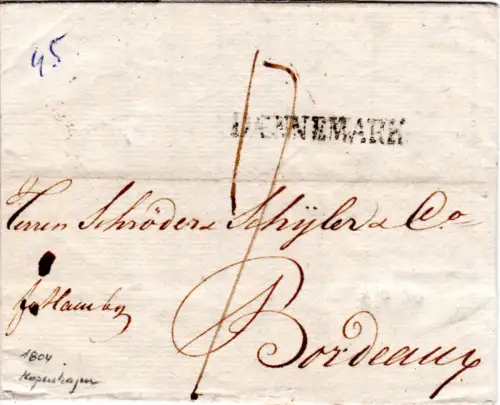 45
DAENNEMARK
Herren Schröder & Schÿler & Co.
fr. Hamburg
Bordeaux
1804
Kopenhagen